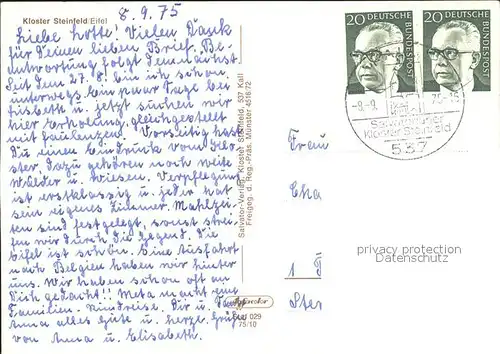 Kloster Steinfeld/Eifel
8.9.75
Liebe Lotte! Vielen Dank
für Deinen lieben Brief. Be-
antwortung folgt demnächst.
Seit dem 27.8. bin ich schon
unterwegs. Ein paar Tage bei
Elisbeth u. jetzt suchen wir
hier Erholung, gleichgestellt
mit Faulenzen. Vorseitig hast
Du einen Eindruck vom Klo-
ster, dazu gehören noch weite
Wälder u. Wiesen. Verpflegung
ist erstklassig u. jeder hat
sein eigenes Zimmer. Mahlzei-
ten sind festgelegt, sonst strei-
fen wir durch die Gegend. Die
Eifel ist schön. Eine Ausfahrt
nach Belgien haben wir hinter
uns. Wir haben schon oft an
Dich gedacht!! Meta macht eine
Familien-Rundreise. Dir u.
Anna alles Gute u. herzl. Grüße
von Anna u. Elisabeth.
Salvator-Verlag, Kloster Steinfeld, 537 Kall
Freigeg. d. Reg.-Präs. Münster 4516/72
029
75/10
20 DEUTSCHE BUNDESPOST
20 DEUTSCHE BUNDESPOST
-8.-9. 75-18
Kloster Steinfeld
537
Frau
1
privacy protection
Datenschutz